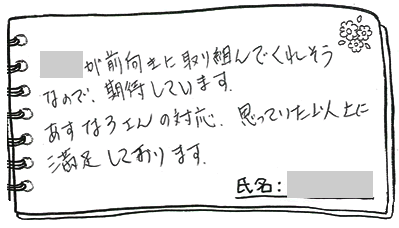 が前向きに取り組んでくれそう
なので、期待しています。
あすなろさんの対応、思っていた以上に
満足しております。
氏名：